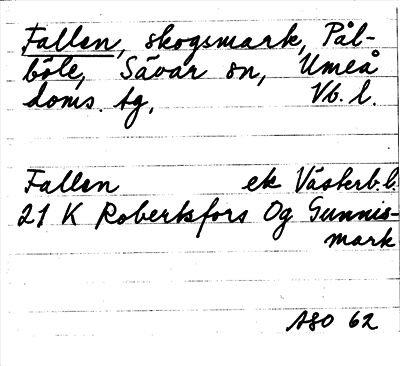 Fallen, skogsmark, Pål-
böle, Sävar sn, Umeå
doms. tg, Vb. l.
Fallen ek Västerb.l.
21 K Robertsfors Og Gunnis-
mark
ASO 62